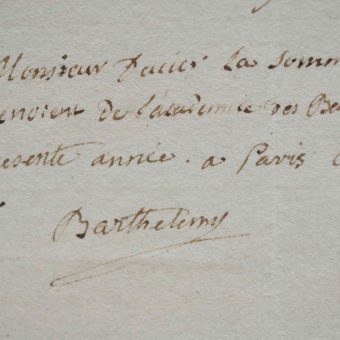 Monsieur Dacier la somm
enoient de l'académie des Be
resente année. a Paris c
Barthelemy